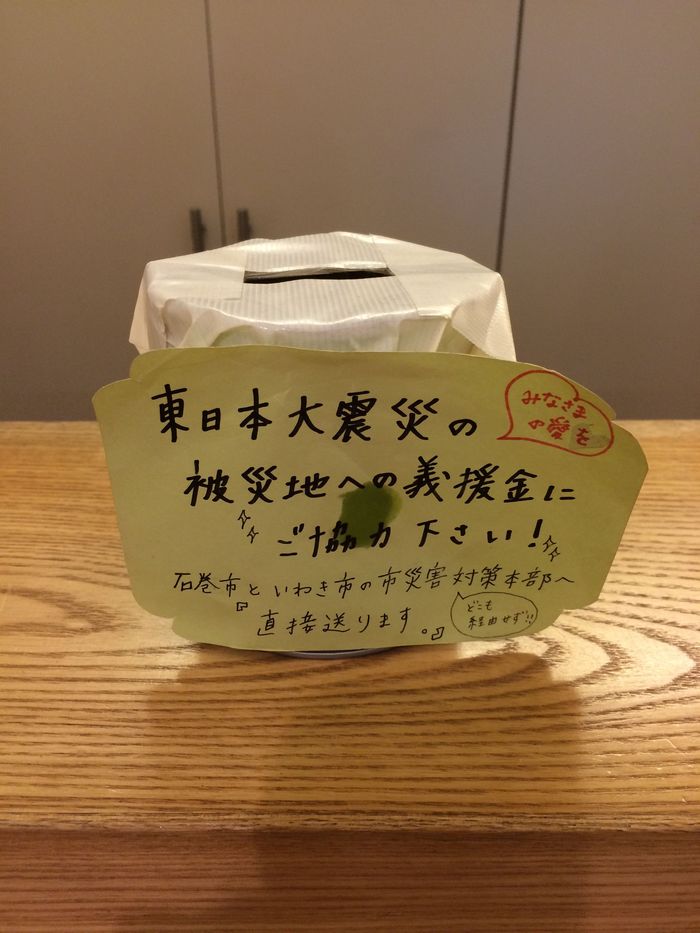 みなさま
の愛を
東日本大震災の
被災地への義援金に
ご協力下さい!
石巻市といわき市の市災害対策本部へ
『直接送ります。』
どこも
経由せず!!